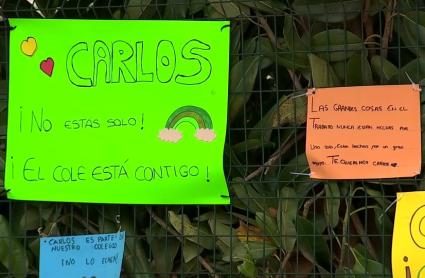 CARLOS
¡NO ESTAS SOLO!
¡EL COLE ESTÁ CONTIGO!
LAS GRANDES COSAS EN EL
TRABAJO NUNCA ESTÁN HECHAS POR
Uno solo, Están hechas por un gran
TE QUEREMOS CARLOS
-CARLOS ES PARTE DE
NUESTRO COLEGIO
¡NO LO